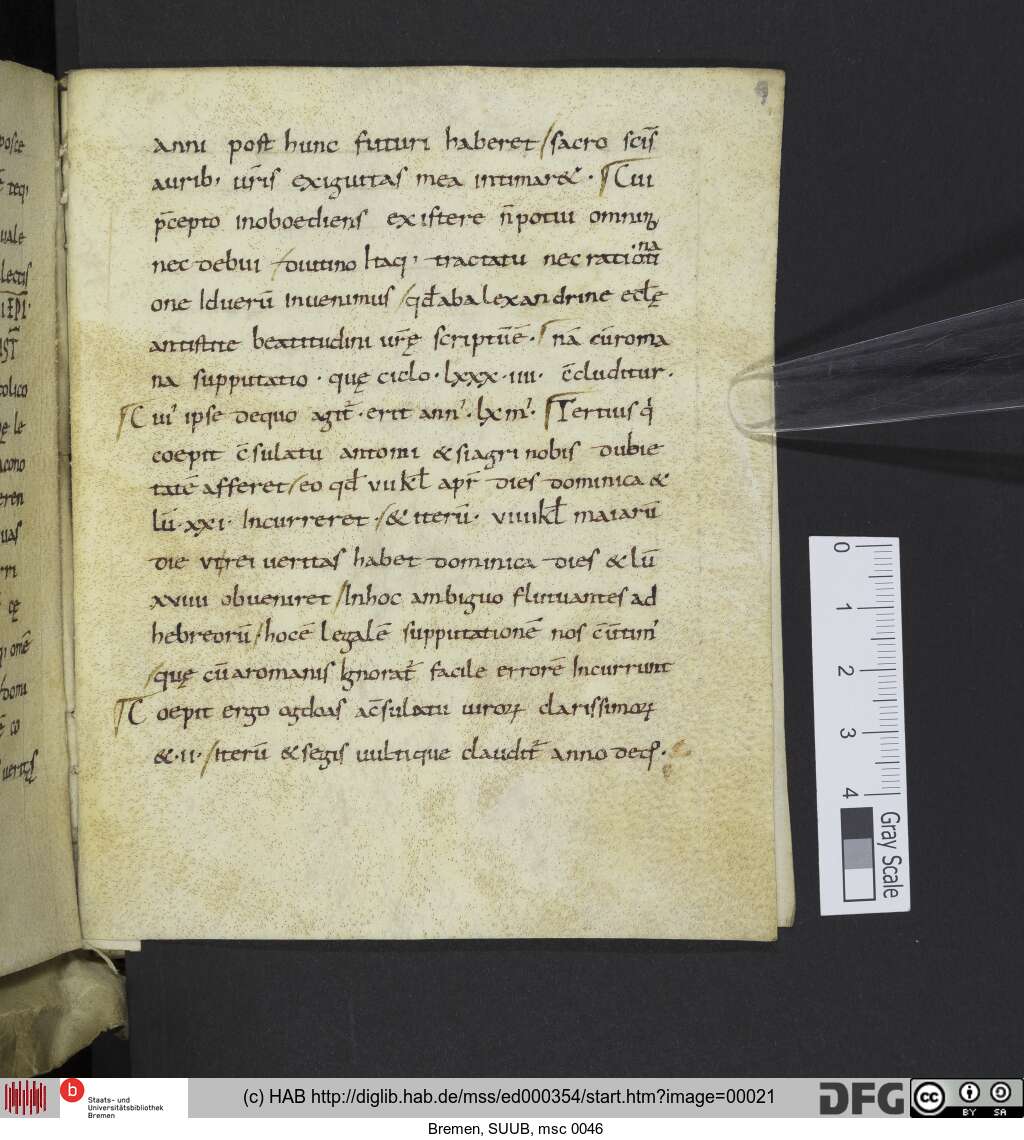 anni post hunc futuri haberet / sacro scīs
aurib; ur̄is exiguitas mea intimar&. Cui
p̄cepto inoboediens existere n̄ potui omnino
nec debui / diutino Itaq; tractatu nec rationina
one Id uerū inuenimus / qđ ab alexandrine eccłę
antistite beatitudini ur̄ę scriptū ē. nā cū roma
na supputatio. quę ciclo. lxxx. iiii. c̄cluditur.
Cui' ipse de quo agit̄. erit ann'. lxiii'. Tertius q'
coepit c̄sulatu antonii & siagri nobis dubie
tatē afferet / eo qđ vii kł apr̄ dies dominica &
lū. xxi. Incurreret. / & iterū. viiii kł maiarū
die v rei ueritas habet dominica dies & lū
xxviiii obueniret / In hoc ambiguo flutuantes ad
hebreorū / hoc ē legalē supputationē nos c̄uertim'
/ quę cū a romanis Ignorat̄ facile errorē Incurrunt
Coepit ergo ogdoas a c̄sulatu uiroꝝ clarissimoꝝ
&. ii. / iterū & segis uultique claudit̄ anno
0
1
2
3
4
Gray Scale
b
Staats- und
Universitätsbibliothek
Bremen
(c) HAB http://diglib.hab.de/mss/ed000354/start.htm?image=00021
DFG
cc
BY SA
Bremen, SUUB, msc 0046